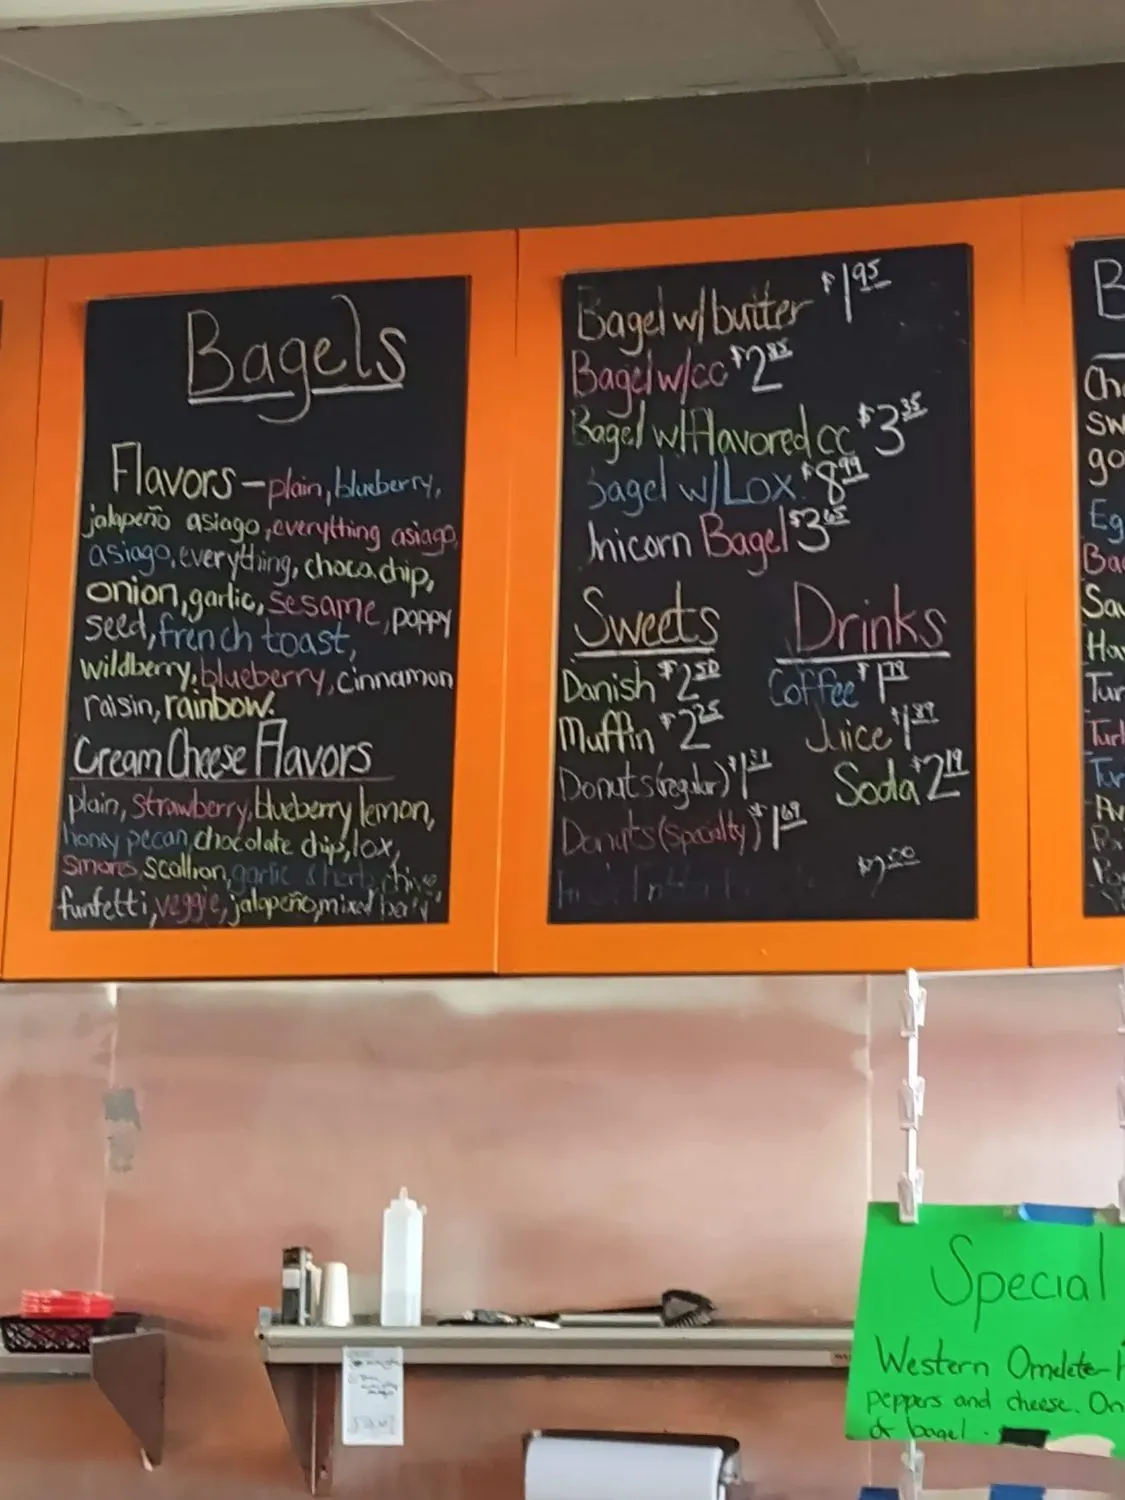 Bagels
Flavors - plain, blueberry,
jalapeño asiago, everything asiago,
asiago, everything, choco.chip,
onion, garlic, sesame, poppy
seed, french toast,
wildberry, blueberry, cinnamon
raisin, rainbow.
Cream Cheese Flavors
plain, strawberry, blueberry lemon,
honey pecan, chocolate chip, lox,
smores, scallion, garlic herb, chive
funfetti, veggie, jalapeño, mixed berry
Bagel w/butter $1.95
Bagel w/cc $2.85
Bagel w/Flavored cc $3.35
Bagel w/Lox $8.99
Unicorn Bagel $3.65
Sweets
Danish $2.50
Muffin $2.25
Donuts (regular) $1
Donuts (specialty) $1.69
Drinks
Coffee $1.79
Juice $1.89
Soda $2.19
B
Ch
Sw
go
Eg
Ba
Sav
Ha
Tur
Turk
Tur
Special
Western Omelete-
peppers and cheese. On
or bagel.